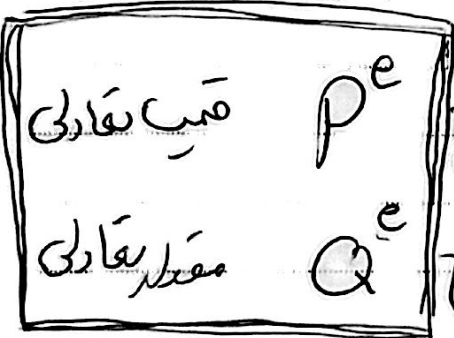 P^e قیمت تعادلی
Q^e مقدار تعادلی